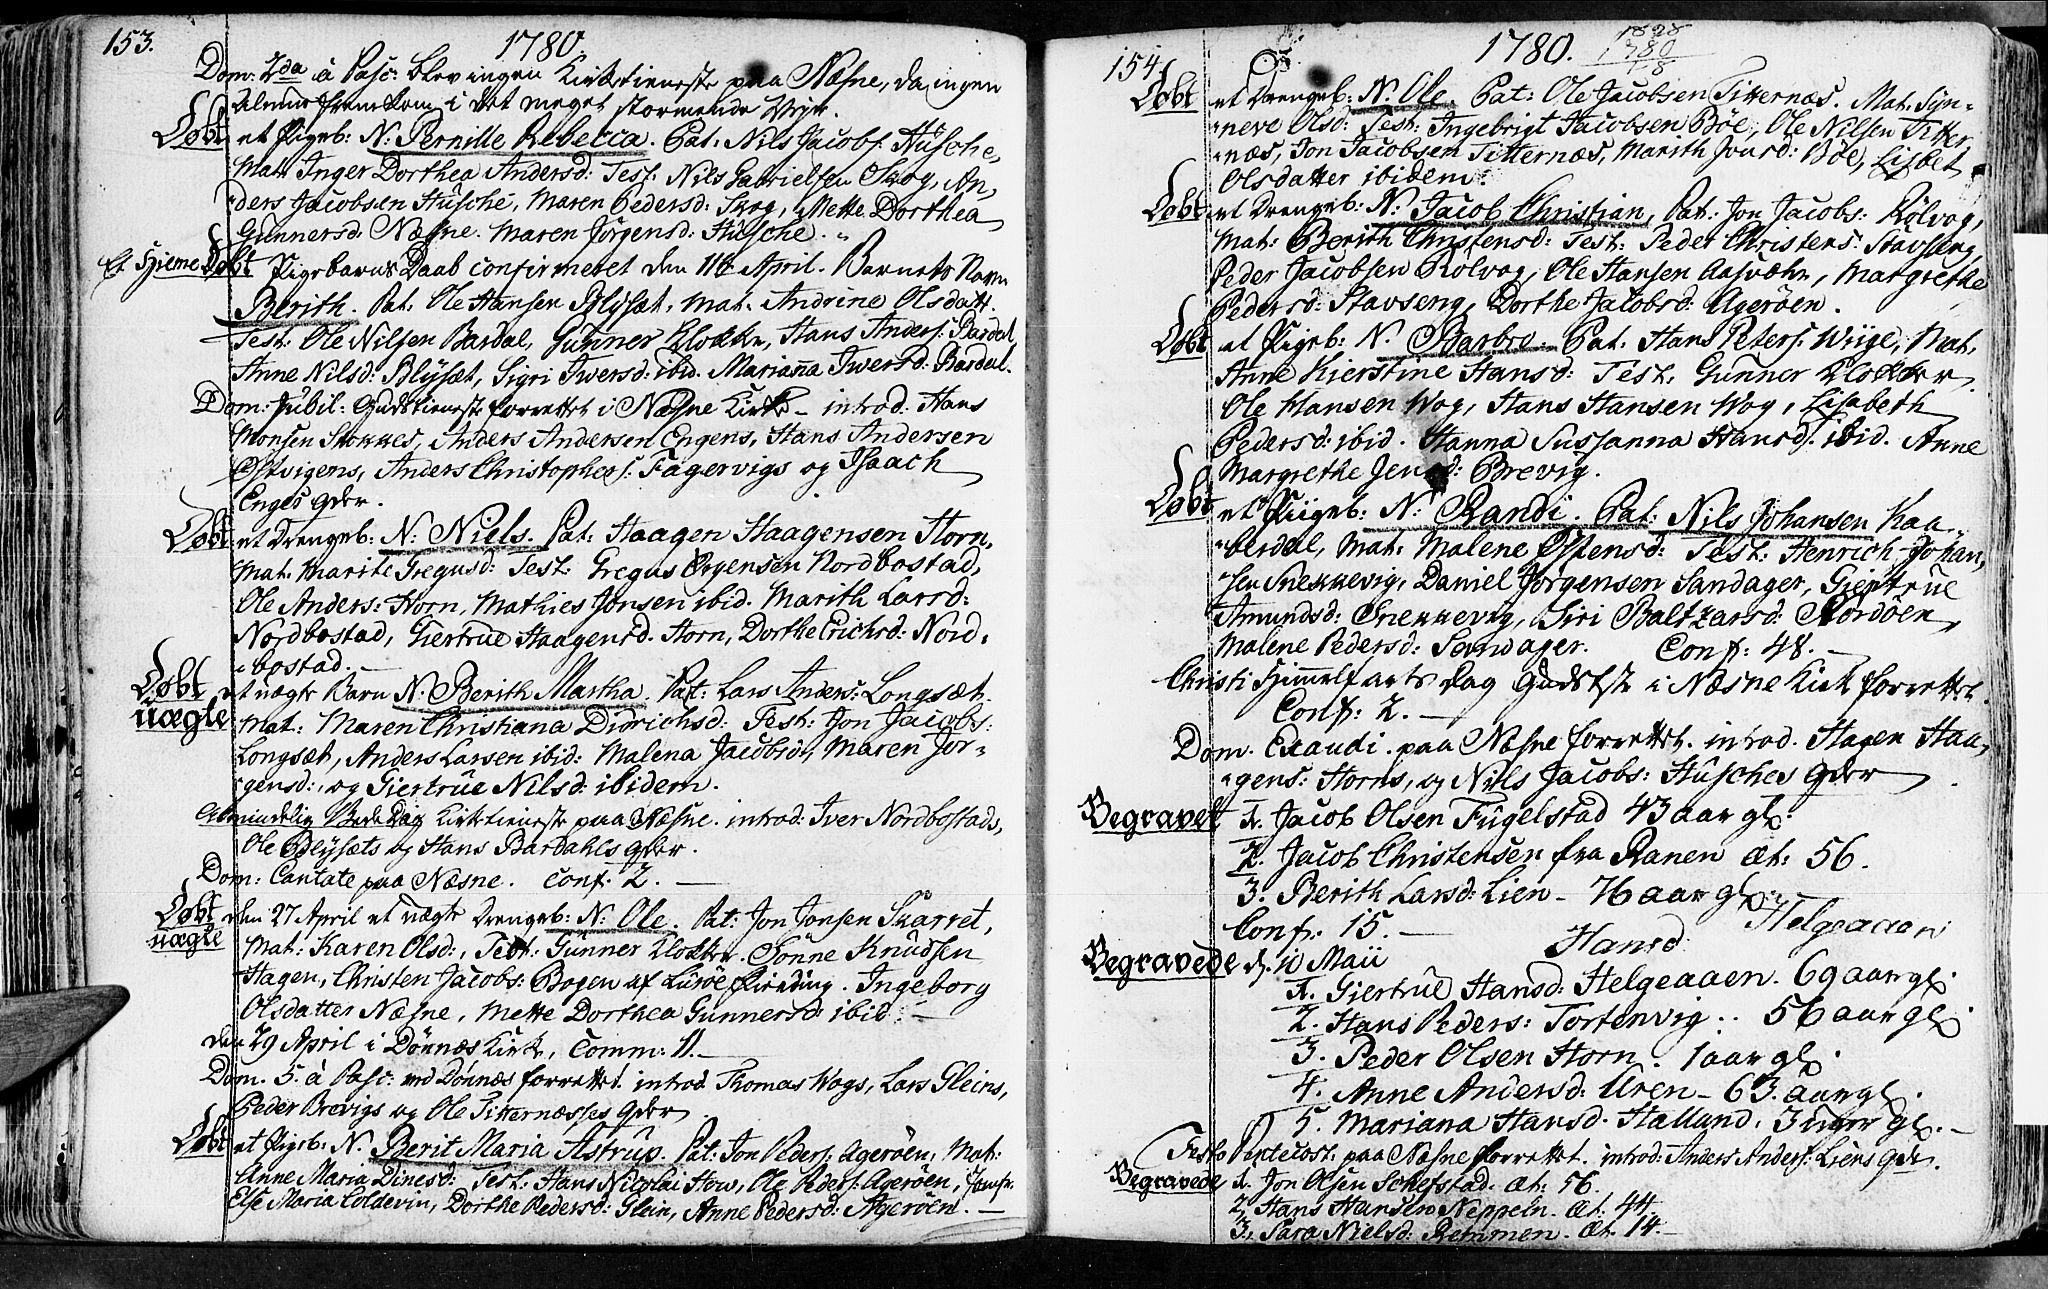 153.
1780.
Dom: 2da à Pasc: blev ingen Kirketieneste paa Næsne, da ingen
Almue fremkom i det meget stormende Veyr.
Døbt et Pigeb: N: Pernille Rebecca. Pat: Nils Jacobs: Húsche,
Mat: Inger Dorthea Andersd: Test: Nils Gabrielsen Skog, An-
ders Jacobsen Húsche, Maren Pedersd: Skog, Mette Dorthea
Gúnnersd: Næsne. Maren Jörgensd: Húsche.
Et Hieme Døbt Pigebarns Daab confirmeret den 11te April. Barnets Navn
Berith. Pat: Ole Hansen Blÿsæt, Mat: Andrine Olsdatt.
Test: Ole Nilsen Bardal, Gúnner Klokker, Hans Anders: Bardal,
Anne Nilsd: Blÿsæt, Sigri Iwersd: ibid. Marianna Iwersd: Bardal.
Dom: Júbil: Gudstieneste forrettet i Næsne Kirke - introd: Hans
Monsen Stokkes, Anders Andersen Engens, Hans Andersen
Østvigens, Anders Christophers: Fagervigs og Isaach
Enges qder.
Døbt et Drengeb: N: Niels. Pat: Haagen Haagensen Horn,
Mat: Marite Gregusd: Test: Gregus Ørgensen Nordbostad,
Ole Anders: Horn, Mathies Jonsen ibid. Marith Larsd:
Nordbostad, Giertrue Haagensd: Horn, Dorthe Erichsd: Nord-
bostad.
Døbt et uægte Barn N. Berith Martha. Pat: Lars Anders: Longsæt.
uægte Mat: Maren Christiana Didrichsd: Test: Jon Jacobs:
Longsæt, Anders Larsen ibid: Malena Jacobsd:, Maren Jor-
gensd:, og Giertrúe Nilsd: ibidem.
Almindelig Bede Dag Kirketieneste paa Næsne. introd: Iver Nordbostads,
Ole Blÿsæts og Hans Bardahls qder.
Dom: Cantate paa Næsne. Conf: 2.
Døbt den 27 April et uægte Drengeb: N: Ole. Pat: Jon Jonsen Skarret,
uægte Mat: Karen Olsd:, Test: Gúnner Klokker. Sönne Knudsen
Hagen, Christen Jacobs: Bogen af Lúröe Fierding. Ingeborg
Olsdatter Næsne, Mette Dorthea Gúnnersd: ibid.
den 29 April i Dønnæs Kirke, Comm: 11.
Dom. 5. à Pasc: ved Dønnæs forrettet. introd Thomas Wogs, Lars Gleins,
Peder Brevigs og Ole Titternæsses qder.
Døbt et Pigeb: N. Berit Maria Astrúp. Pat: Jon Peders: Ageröen, Mat:
Anne Maria Dinesd: Test: Hans Nicolai How, Ole Peders: Ageröen, Jomfr.
Else Maria Coldevin, Dorthe Pedersd: Glein, Anne Pedersd: Ageröen.
154.
1780.
1828
1780
48
Døbt et Drengeb: N: Ole. Pat: Ole Jacobsen Titternæs. Mat: Sÿn-
neve Olsd: Test: Ingebrigt Jacobsen Böe, Ole Nilsen Titter-
næs, Jon Jacobsen Titternæs, Marith Jonsd: Böe, Lisbet
Olsdatter ibidem.
Døbt et Drengeb: N: Jacob Christian, Pat: Jon Jacobs: Rölvog,
Mat: Berith Christensd: Test: Peder Christens: Stavseng,
Peder Jacobsen Rölvog, Ole Hansen Aasvæhr, Margrethe
Pedersd: Stavseng, Dorthe Jacobsd: Ageröen.
Døbt et Pigeb: N. Barbro. Pat. Hans Peters: Wiige, Mat.
Anne Kierstine Hansd: Test: Gúnner Klokker
Ole Hansen Wog, Hans Hansen Wog, Lisabeth
Pedersd: ibid. Hanna Sussanna Hansd: ibid. Anne
Margrethe Jensd: Brevig.
Døbt et Piigeb: N: Randi. Pat: Nils Johansen Kaa-
berdal, Mat: Malene Østensd: Test: Henrich Johan-
sen Snekkevig, Daniel Jörgensen Sandager, Giertrue
Amundsd: Snekkevig, Siri Baltzarsd: Nordöen,
Malene Pedersd: Sandager. Conf: 48.
Christi Himmelfarts Dag Gudstste i Næsne Kirke forrettet.
Conf: 2.
Dom. Exaudi. paa Næsne forrettet. introd. Hagen Haa-
gens: Horns, og Niels Jacobs: Húsches qder
Begravet 1. Jacob Olsen Fúgelstad 43 aar gl:
2. Jacob Christensen fra Ranen æt: 56.
3. Berith Larsd: Lien - 76 aar gl:
Conf: 15.
Helgeaaen
Hansd
Begravede d. 10 Maii
1. Giertrúe Hansd: Helgeaaen. 69 aar gl.
2. Hans Peders: Tortenvig. 56 aar gl.
3. Peder Olsen Horn. 1 aar gl.
4. Anne Andersd: Úren - 63. aar gl.
5. Mariana Hansd. Halland. 3 uger gl.
Festo Pentecost: paa Næsne forrettet. introd: Anders Anders: Liens qde.
Begravede 1. Jon Olsen Schefstad. æt: 56.
2. Hans Hansen Neppeln. æt. 44.
3. Sara Nielsd: Remmen. æt. 14.